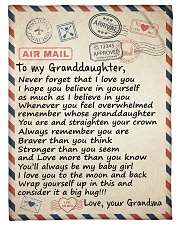 AIR MAIL
APPROVED
12345
To my Granddaughter,
Never forget that I love you
I hope you believe in yourself
as much as I believe in you
Whenever you feel overwhelmed
remember whose granddaughter
you are and straighten your crown
Always remember you are
Braver than you think
Stronger than you seem
and Love more than you know
You'll always be my baby girl
I love you to the moon and back
Wrap yourself up in this and
consider it a big hug!!!
Love, your Grandma